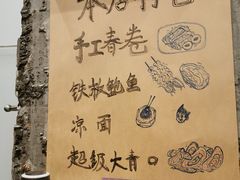 本店特色
手工春卷
铁板鲍鱼
凉面
超级大青口